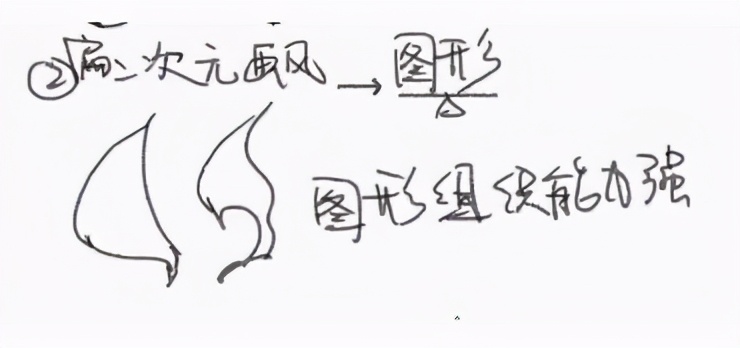 ②偏二次元画风→图形
图形组织能力强